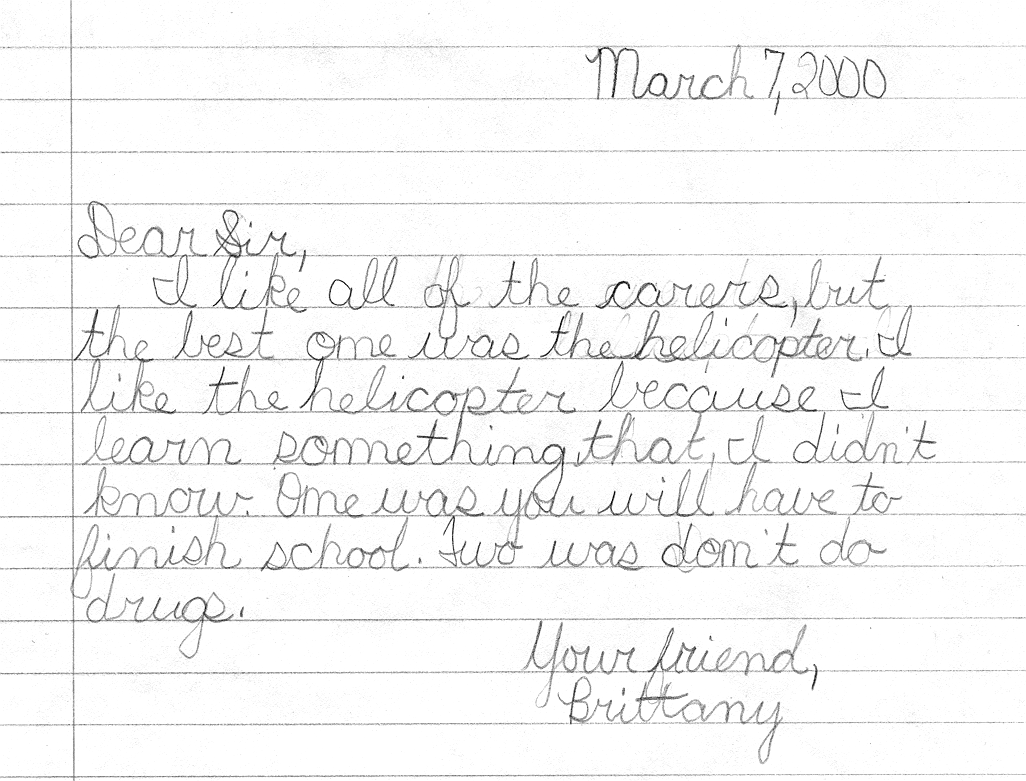 March 7, 2000
Dear Sir,
I like all of the carers, but
the best one was the helicopter. I
like the helicopter because I
learn something, that, I didn't
know. One was you will have to
finish school. Two was don't do
drugs.
Your friend,
Brittany